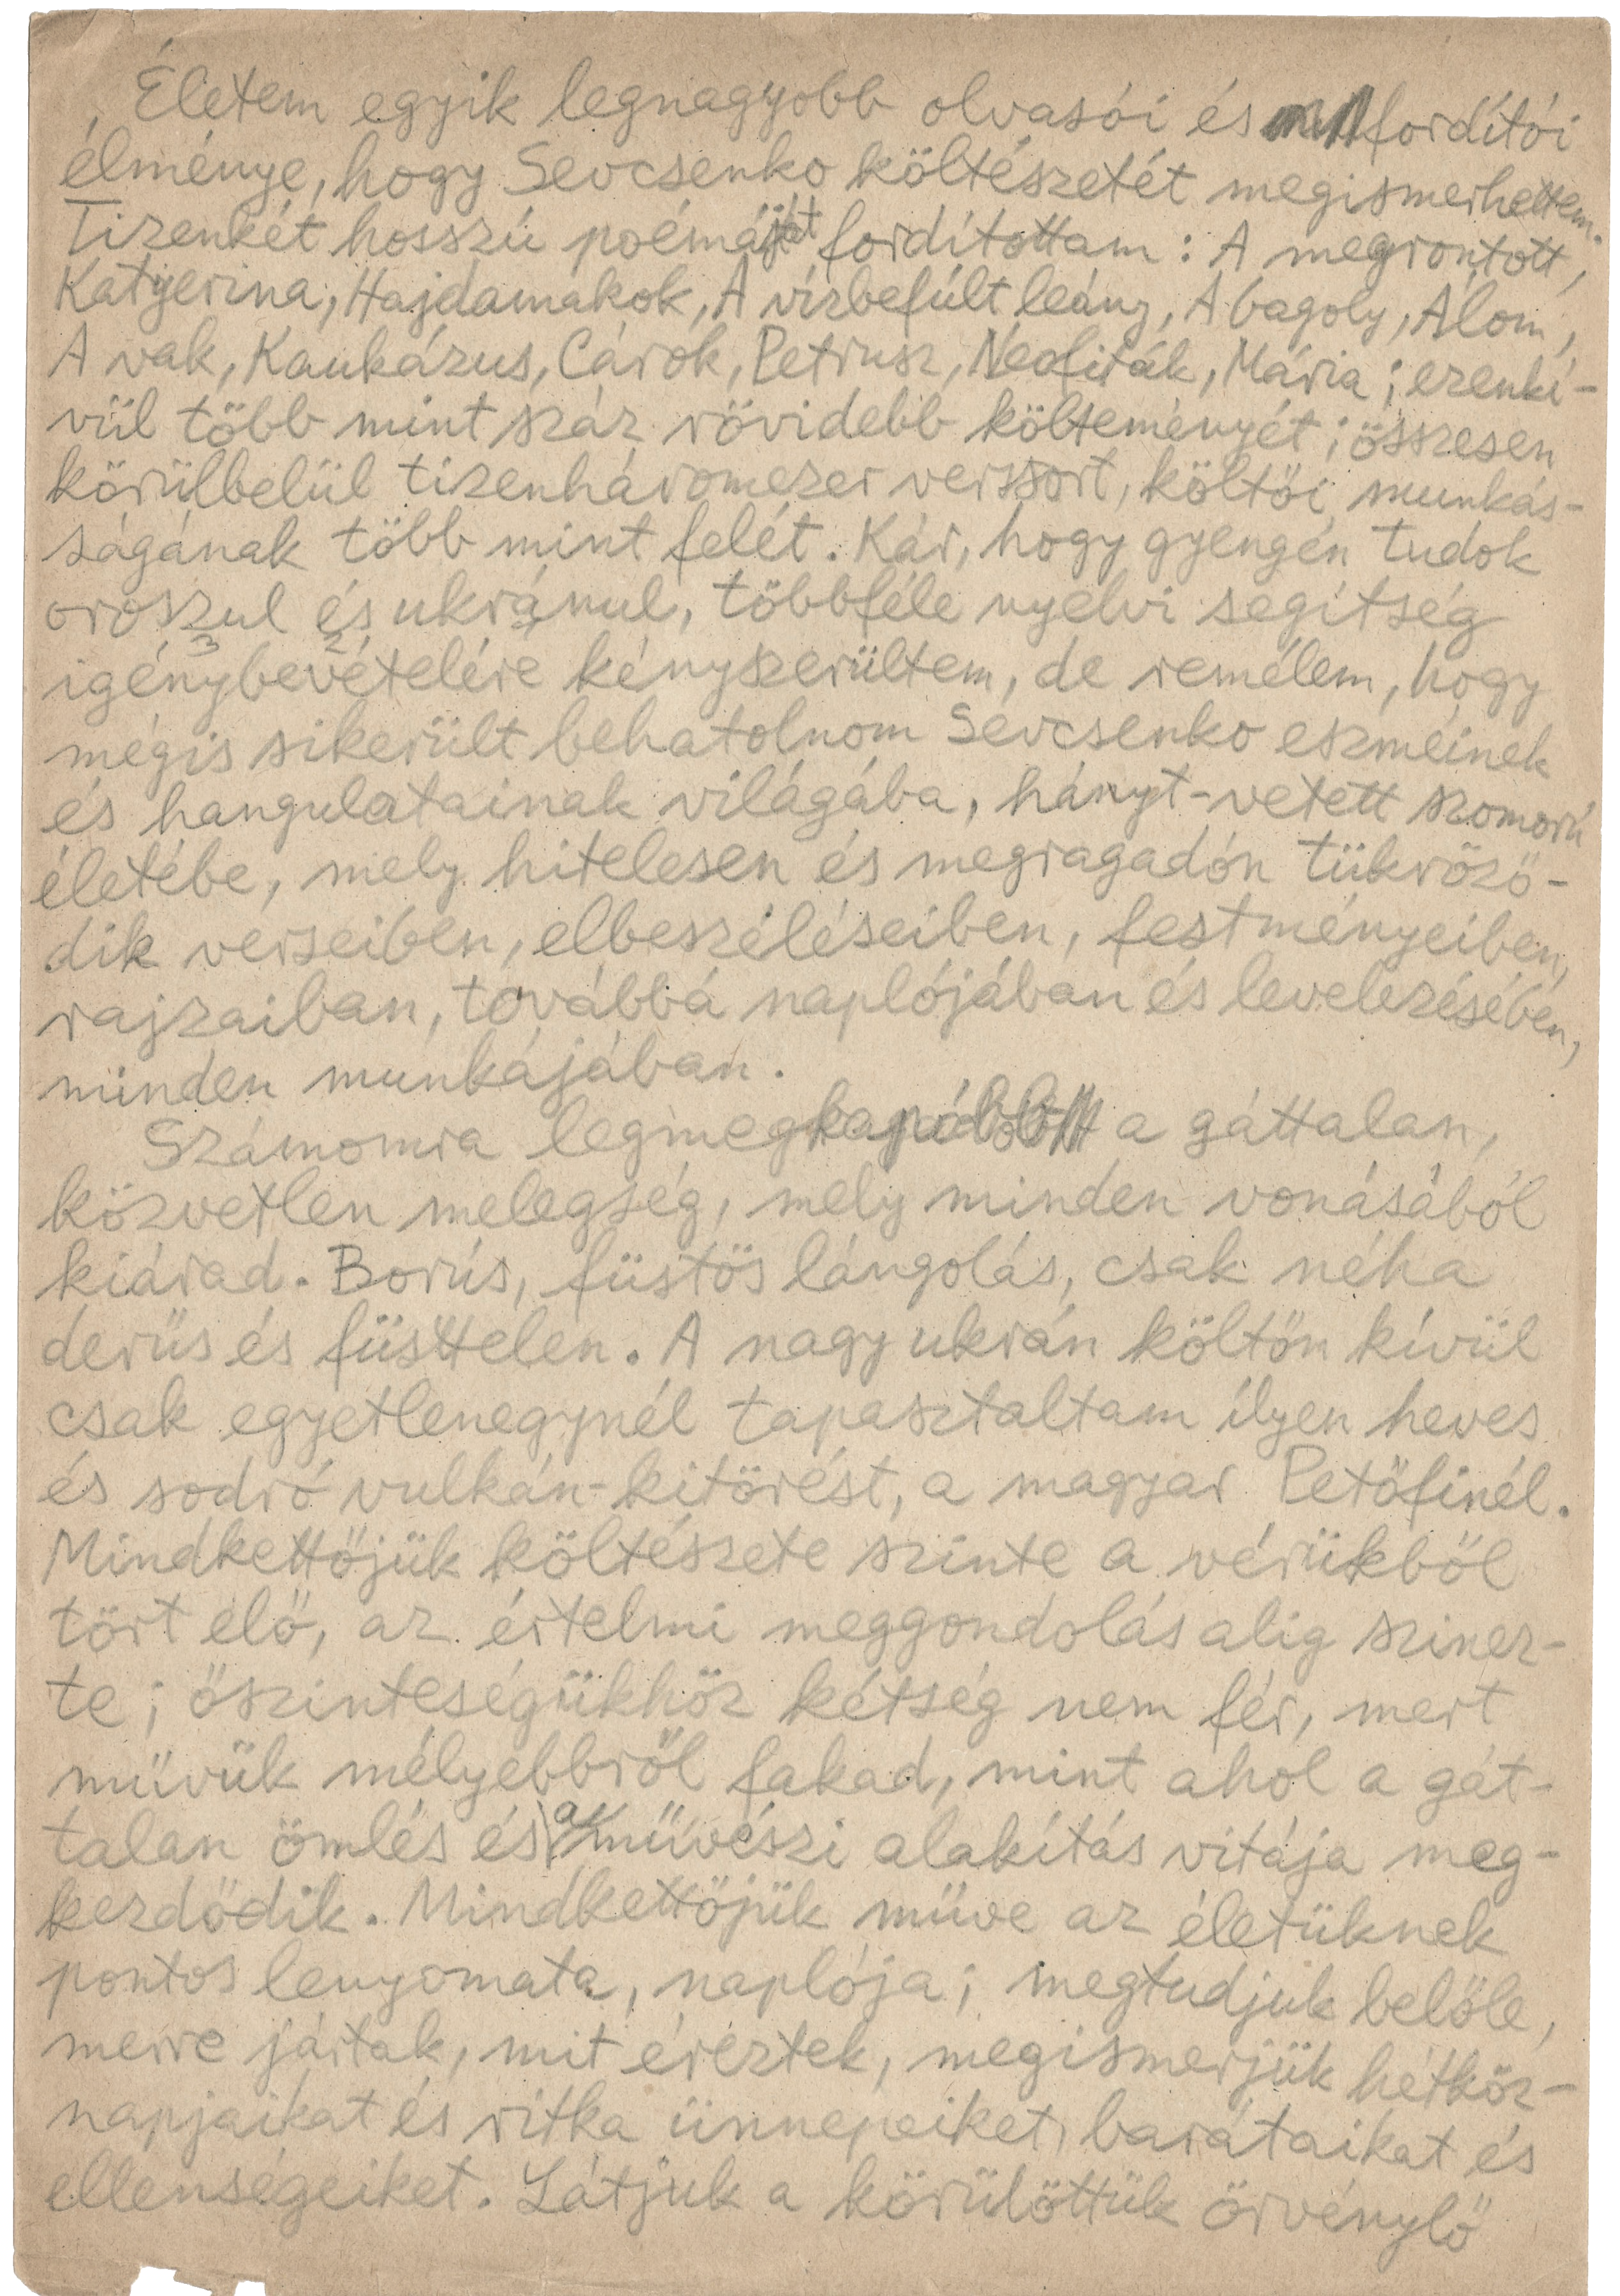 Életem egyik legnagyobb olvasói és fordítói
élménye, hogy Sevcsenko költészetét megismerhettem.
Tizenkét hosszú poémáját fordítottam: A megrontott,
Katyerina, Hajdamákok, A vízbefúlt leány, A bagoly, Álom,
A vak, Kaukázus, Cárok, Petrusz, Neofiták, Mária; ezenkí-
vül több mint száz rövidebb költeményét; összesen
körülbelül tizenháromezer verssort, költői munkás-
ságának több mint felét. Kár, hogy gyengén tudok
oroszul és ukránul, többféle nyelvi segítség
igénybevételére kényszerültem, de remélem, hogy
mégis sikerült behatolnom Sevcsenko eszméinek
és hangulatainak világába, hányt-vetett szomorú
életébe, mely hitelesen és megragadón tükröző-
dik verseiben, elbeszéléseiben, festményeiben,
rajzaiban, továbbá naplójában és levelezésében,
minden munkájában.
Számomra legmegkapóbb a gáttalan,
közvetlen melegség, mely minden vonásából
kiárad. Borús, füstös lángolás, csak néha
derüs és füsttelen. A nagy ukrán költőn kívül
csak egyetlenegynél tapasztaltam ilyen heves
és sodró vulkán-kitörést, a magyar Petőfinél.
Mindkettőjük költészete szinte a vérükből
tört elő, az értelmi meggondolás alig szinez-
te; őszinteségükhöz kétség nem fér, mert
müvük mélyebbről fakad, mint ahol a gát-
talan ömlés és a müvészi alakítás vitája meg-
kezdődik. Mindkettőjük müve az életüknek
pontos lenyomata, naplója; megtudjuk belőle,
merre jártak, mit éreztek, megismerjük hétköz-
napjaikat és ritka ünnepeiket, barátaikat és
ellenségeiket. Látjuk a körülöttük örvénylő